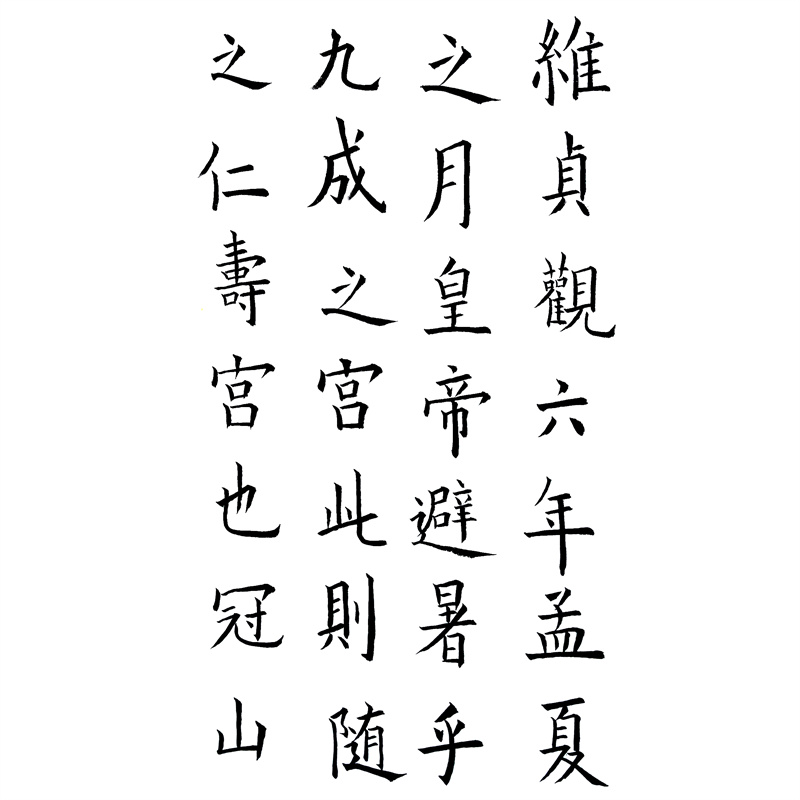 維貞觀六年孟夏
之月皇帝避暑乎
九成之宮此則随
之仁壽宮也冠山